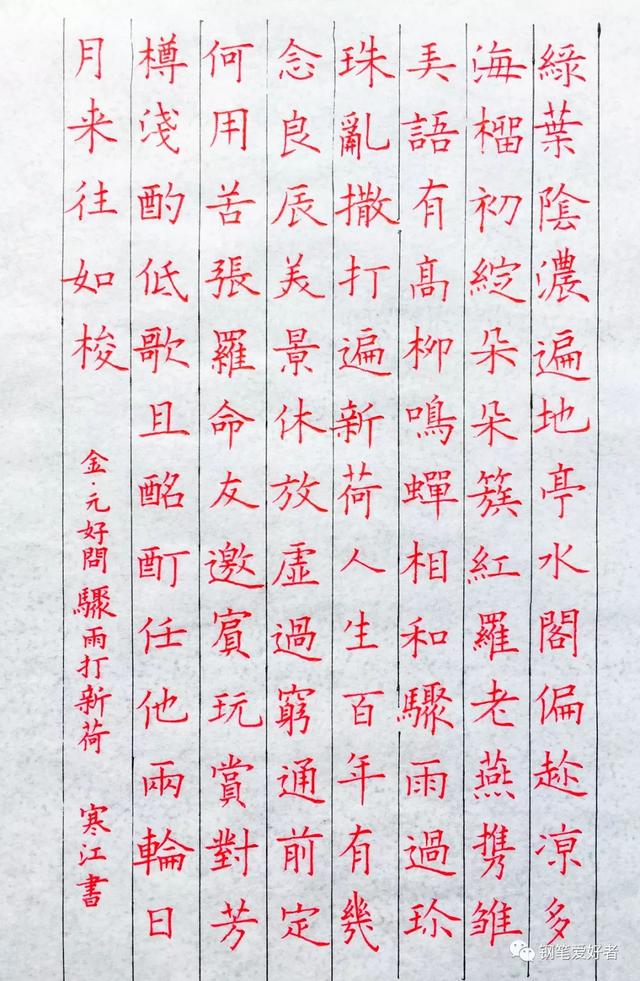 綠葉陰濃遍地亭水閣偏趂凉多
海榴初綻朵朵簇紅羅老燕携雛
弄語有髙柳鳴蟬相和驟雨過珎
珠亂撒打遍新荷人生百年有幾
念良辰美景休放虛過窮通前定
何用苦張羅命友邀賓玩賞對芳
樽淺酌低歌且酩酊任他兩輪日
月来往如梭
金·元好問 驟雨打新荷 寒江書
钢笔爱好者